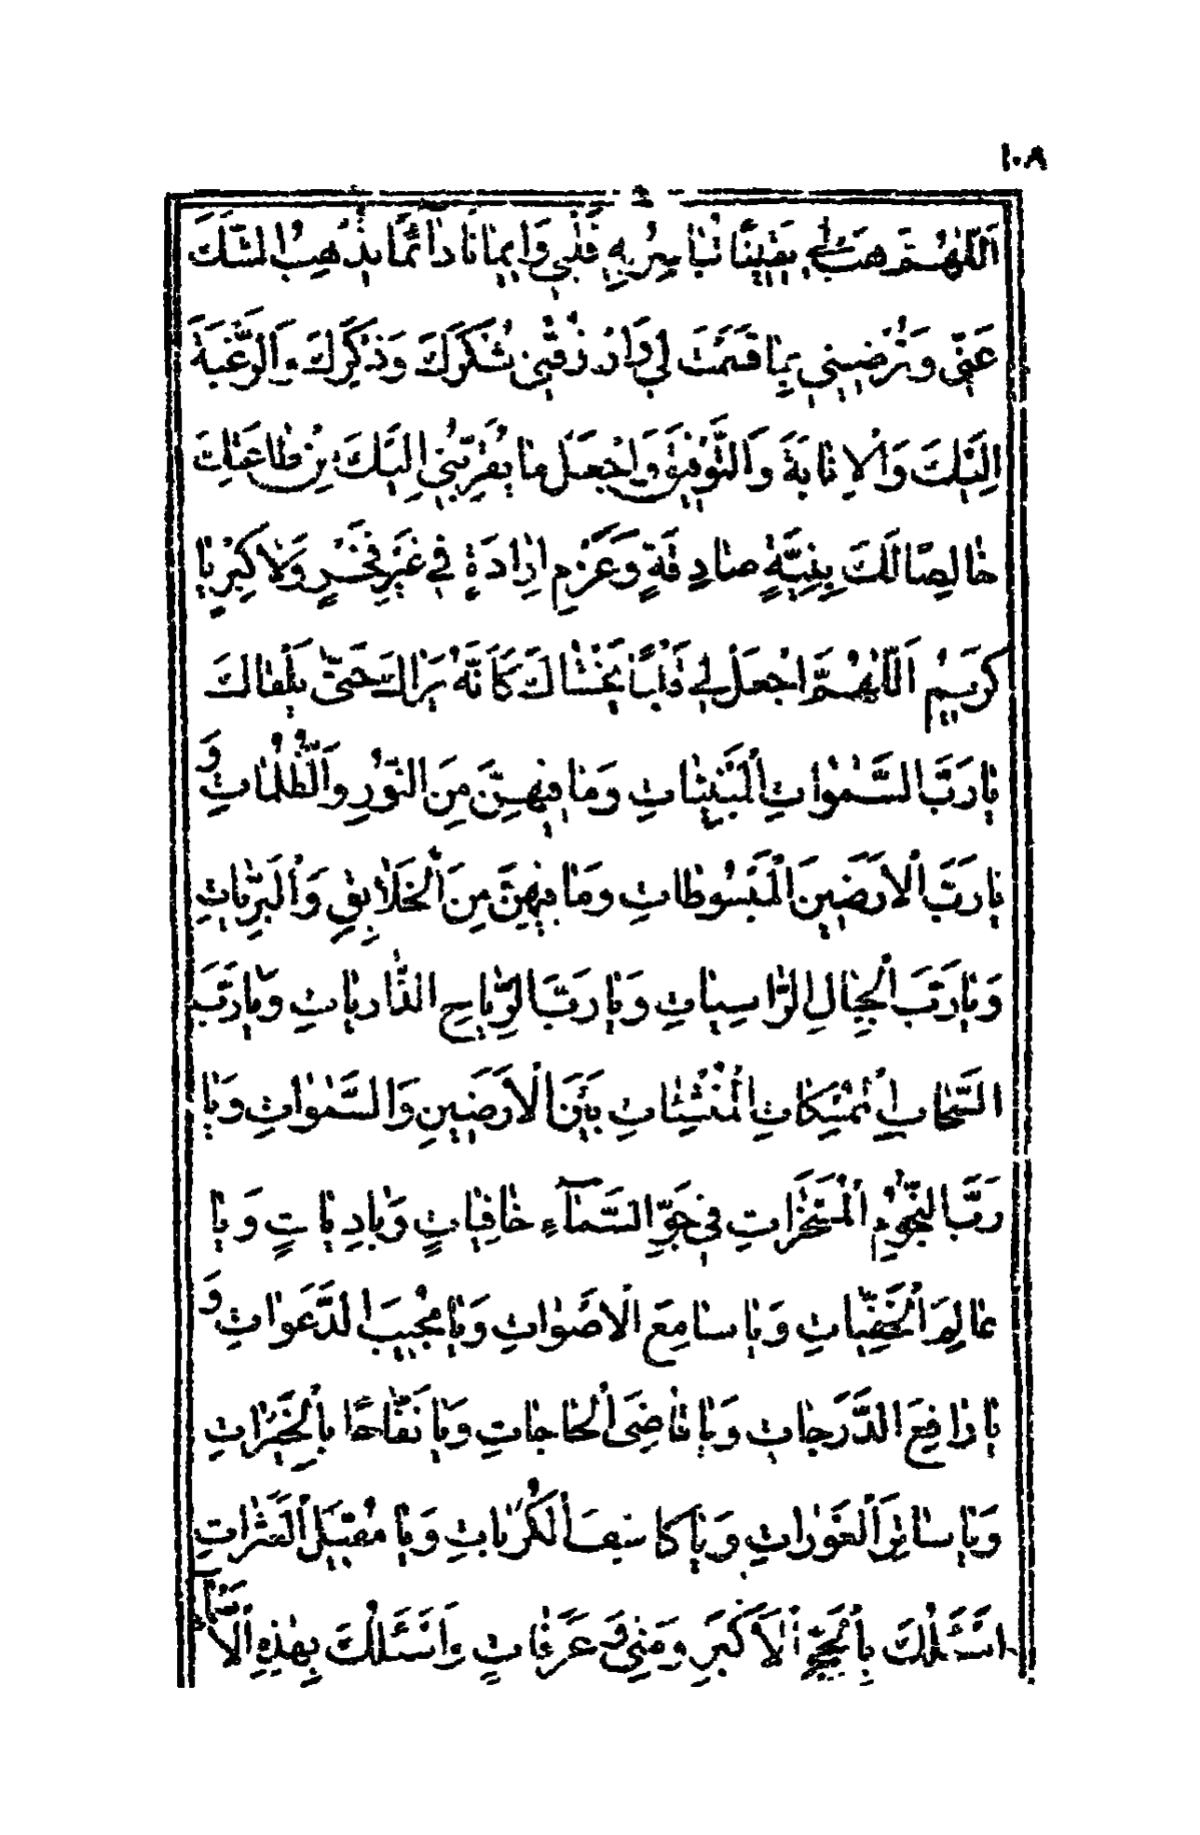 ١٠٨
اَللّٰهُمَّ هَبْ لِي يَقِيْنًا تُبَاشِرُ بِهِ قَلْبِي وَاِيمَانًا دَآئِمًا يُذْهِبُ الشَّكَ
عَنِّي وَتُرْضِيْنِي بِمَا قَسَمْتَ لِي وَارْزُقْنِي شُكْرَكَ وَذِكْرَكَ وَالرَّغْبَةَ
اِلَيْكَ وَالْاِنَابَةَ وَالتَّوْفِيْقَ وَاجْعَلْ مَا يُقَرِّبُنِي اِلَيْكَ مِنْ طَاعَاتِكَ
خَالِصًا لَكَ بِنِيَّةٍ صَادِقَةٍ وَعَزْمِ اِرَادَةٍ فِي غَيْرِ فَخْرٍ وَلَا كِبْرٍ يَا
كَرِيْمُ اَللّٰهُمَّ اجْعَلْ لِي قَلْبًا يَخْشَاكَ كَاَنَّهُ يَرَاكَ حَتّٰى يَلْقَاكَ
يَا رَبَّ السَّمٰوَاتِ الْمَبْنِيَّاتِ وَمَا فِيْهِنَّ مِنَ النُّوْرِ وَالظُّلُمَاتِ وَ
يَا رَبَّ الْاَرَضِيْنَ الْمَبْسُوطَاتِ وَمَا فِيْهِنَّ مِنَ الْخَلَايِقِ وَالْبَرِيَّاتِ
وَيَا رَبَّ الْجِبَالِ الرَّاسِيَاتِ وَيَا رَبَّ الرِّيَاحِ الذَّارِيَاتِ وَيَا رَبَّ
السَّحَابِ الْمُمْسِكَاتِ الْمُنْشِئَاتِ بَيْنَ الْاَرَضِيْنِ وَالسَّمٰوَاتِ وَيَا
رَبَّ النُّجُوْمِ الْمُسَخَّرَاتِ فِي جَوِّ السَّمَآءِ خَافِيَاتٍ وَبَادِيَاتٍ وَيَا
عَالِمَ الْخَفِيَّاتِ وَيَا سَامِعَ الْاَصْوَاتِ وَيَا مُجِيْبَ الدَّعَوَاتِ وَ
يَا رَافِعَ الدَّرَجَاتِ وَيَا قَاضِيَ الْحَاجَاتِ وَيَا نَفَّاحًا بِالْخَيْرَاتِ
وَيَا سَاتِرَ الْعَوْرَاتِ وَيَا كَاشِفَ الْكُرُبَاتِ وَيَا مُقِيْلَ الْعَثَرَاتِ
اَسْئَلُكَ بِالْحَجِّ الْاَكْبَرِ وَمِنٰى وَعَرَفَاتٍ وَاَسْئَلُكَ بِهٰذِهِ الْاَ